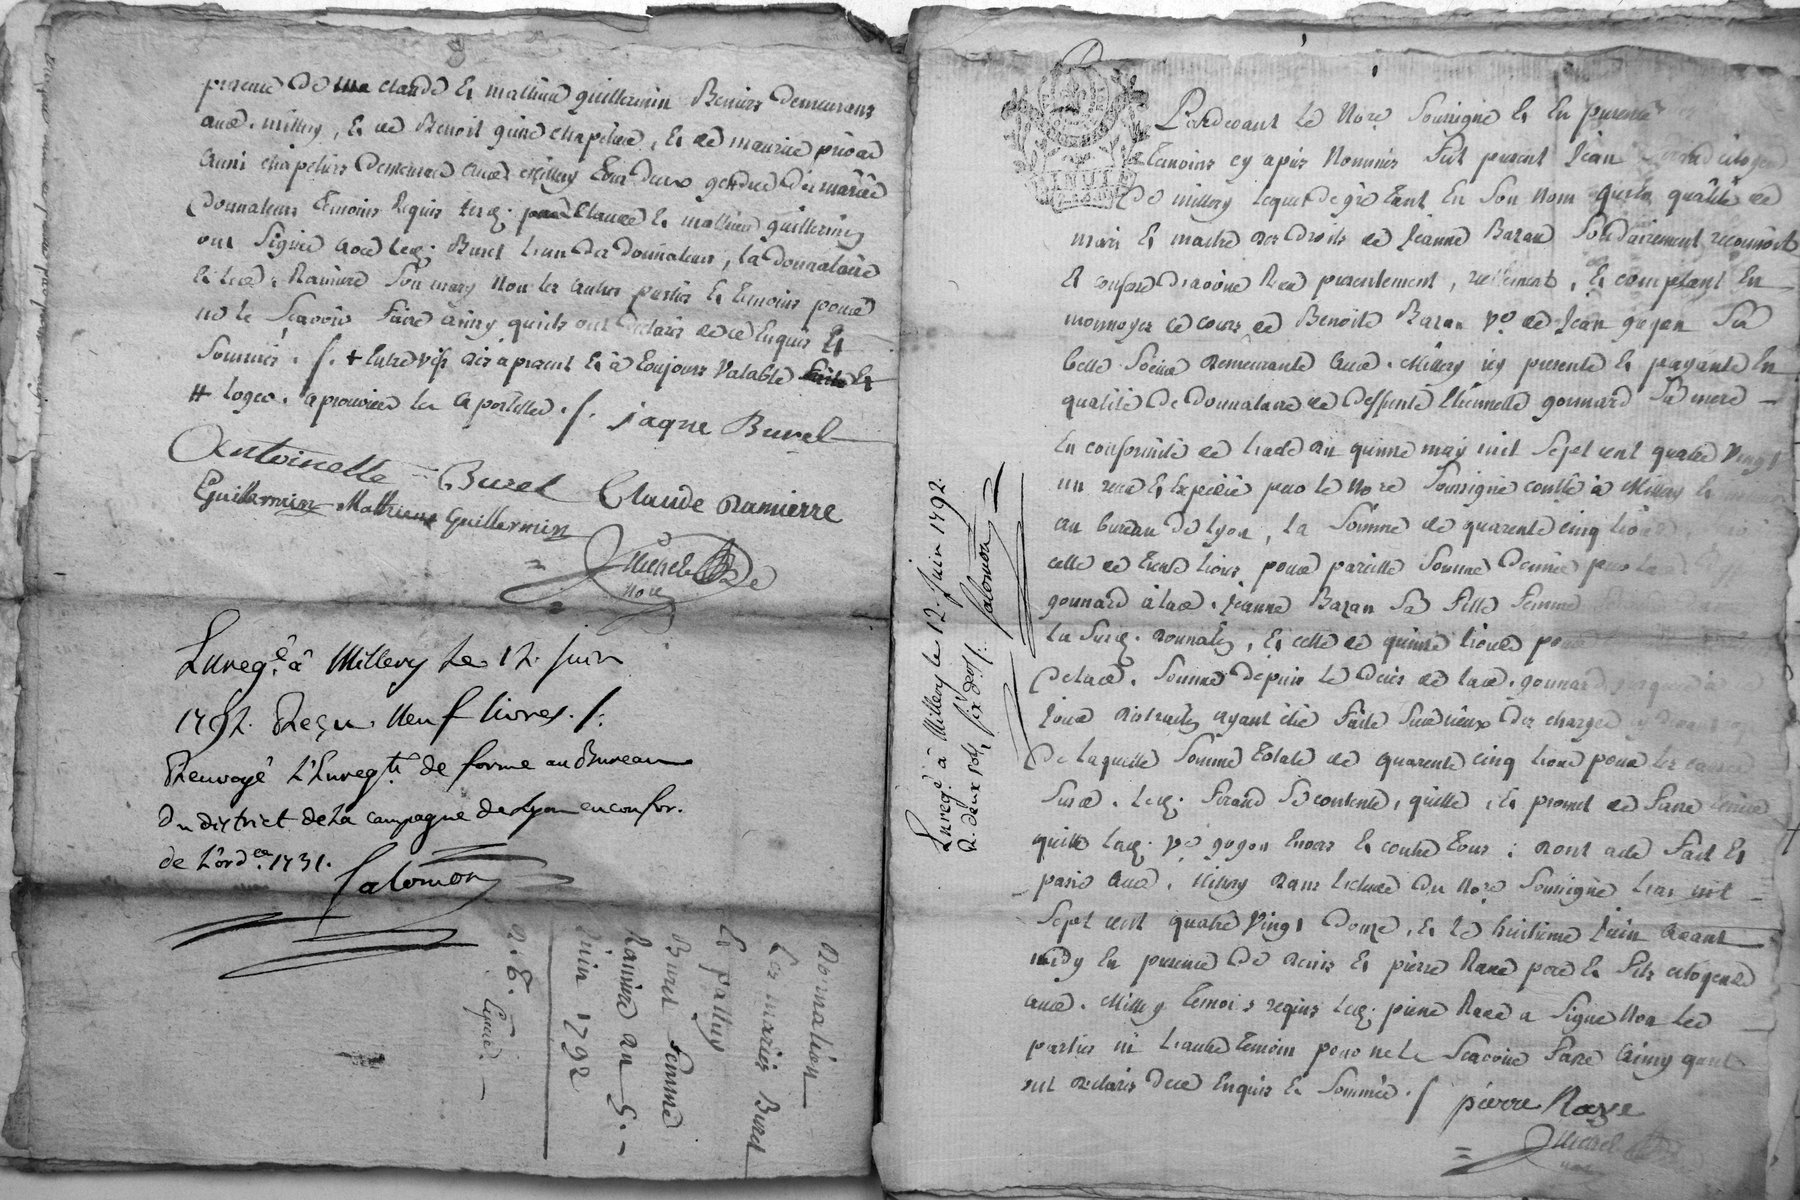 presence de claude et mathieu guillermin Demeurans
aud. millery, et de Benoit chapelier, et de
aussi chapeliers aud. millery tous deux gendre des mariés
Donnateurs temoins requis lesq. Claude et mathieu guillermin
ont signé avec led. Burel l'un des donnateurs, la donnataire
et led. Ramiere son mary non les autres parties et temoins pour
ne le sçavoir faire ainsy quils ont declaré de ce enquis et
sommés ./. + entre vifs des a present et à toujours valable
# loger. aprouvées les apostilles ./. jaque Burel
Antoinette Burel Claude Ramierre
Guillermin Mathieu Guillermin
nore
Enregé à Millery Le 12. juin
1792. Reçu neuf livres ./.
Renvoyé L'Enregt de forme au Bureau
Du district de La campagne de Lyon en confor.
de L'ord.ce 1731.
Salomon
Donnation
Les mariés Burel
et
Burel femme
Ramiere du 5.
juin 1792
Enregé à Millery le 12. juin 1792.
R. deux sols six den. ./. Salomon
Pardevant Le Nore soussigné et en presence
des temoins cy après nommés fut present Jean citoyen
de millery lequel de gré tant en son nom qu'en qualité de
mari et maitre des droits de Jeanne Bazan solidairement reconnoit
et confesse d'avoir reçu presentement, reellement, et comptant en
monnoyes de cours de Benoite Bazan ve de Jean goyon sa
belle soeur demeurante aud. Millery icy presente et payante en
qualité de Donnataire de deffunte Etiennette gonnard sa mere
en conformité de l'acte du quinze may mil sept cent quatre vingt
un reçu et expedié par le Nore soussigné controllé à Millery
au bureau de Lyon, la somme de quarente cinq livres
celle de trente livres pour pareille somme donnée par lad.
gonnard à lad. Jeanne Bazan sa fille femme
la susd. donnation, et celle de quinze livres pour
de lad. somme depuis le deces de lad. gonnard jusqu'à
jour ayant été faite des charges
de laquelle somme totale de quarente cinq livres pour les causes
susd. led. se contente, quitte, et promet de faire tenir
quitte lad. ve goyon envers et contre tous: dont acte fait et
passé aud. Millery dans l'etude du Nore soussigné l'an mil
sept cent quatre vingt douze, et le huitieme juin avant
midy en presence de et pierre Raze pere et fils citoyens
aud. Millery temoins requis led. pierre Raze a signé non les
parties ni l'autre temoin pour ne le scavoir faire ainsy quils
ont declaré de ce enquis et sommés ./. pierre Raze